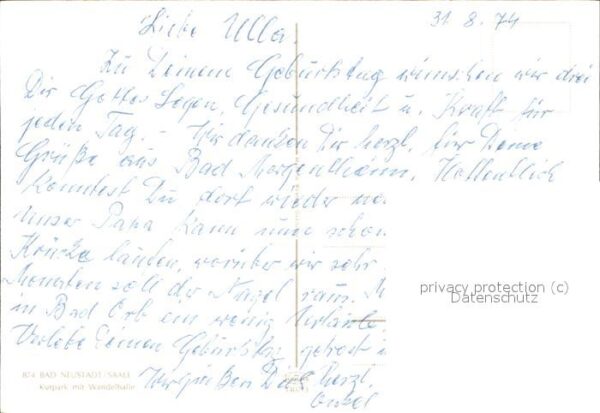 31. 8. 74
Liebe Ulla.
Zu Deinem Geburtstag wünschen wir drei
Dir Gottes Segen, Gesundheit u. Kraft für
jeden Tag. - Wir danken Dir herzl. für Deine
Grüße aus Bad Mergentheim. Hoffentlich
konntest Du dort wieder
Unser Papa kann nun schon
Krücke laufen, worüber wir sehr
Monaten soll der Nagel raus. M
in Bad Orb ein wenig
Verlebe Deinen Geburtstag getrost
Es grüßen Dich herzl.
Onkel
privacy protection (c)
Datenschutz
874 BAD NEUSTADT/SAALE
Kurpark mit Wandelhalle